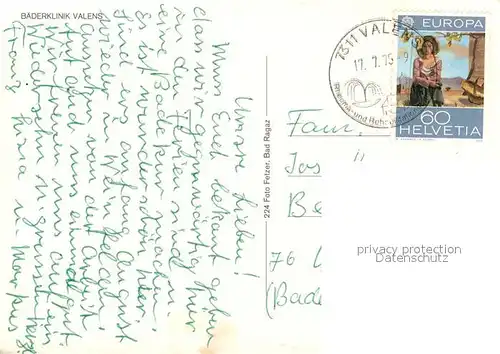 BÄDERKLINIK VALENS
Unsere Lieben!
Nun Euch bekannt geben
dass wir gegenwärtig hier
in den Ferien sind
eine Badekur machen.
Es ist wunderschön hier.
Sind erst anfang August
wieder in
Ausruhen von der Arbeit
tut gut.
Wir freuen uns auf ein
Wiedersehen u. grüssen
Franz u. Markus
224 Foto Fetzer, Bad Ragaz
7311 VALENS
17. 7. 75
Rheuma- und
EUROPA
60
HELVETIA
Fam.
Jos
Be
76
(Bade
privacy protection
Datenschutz